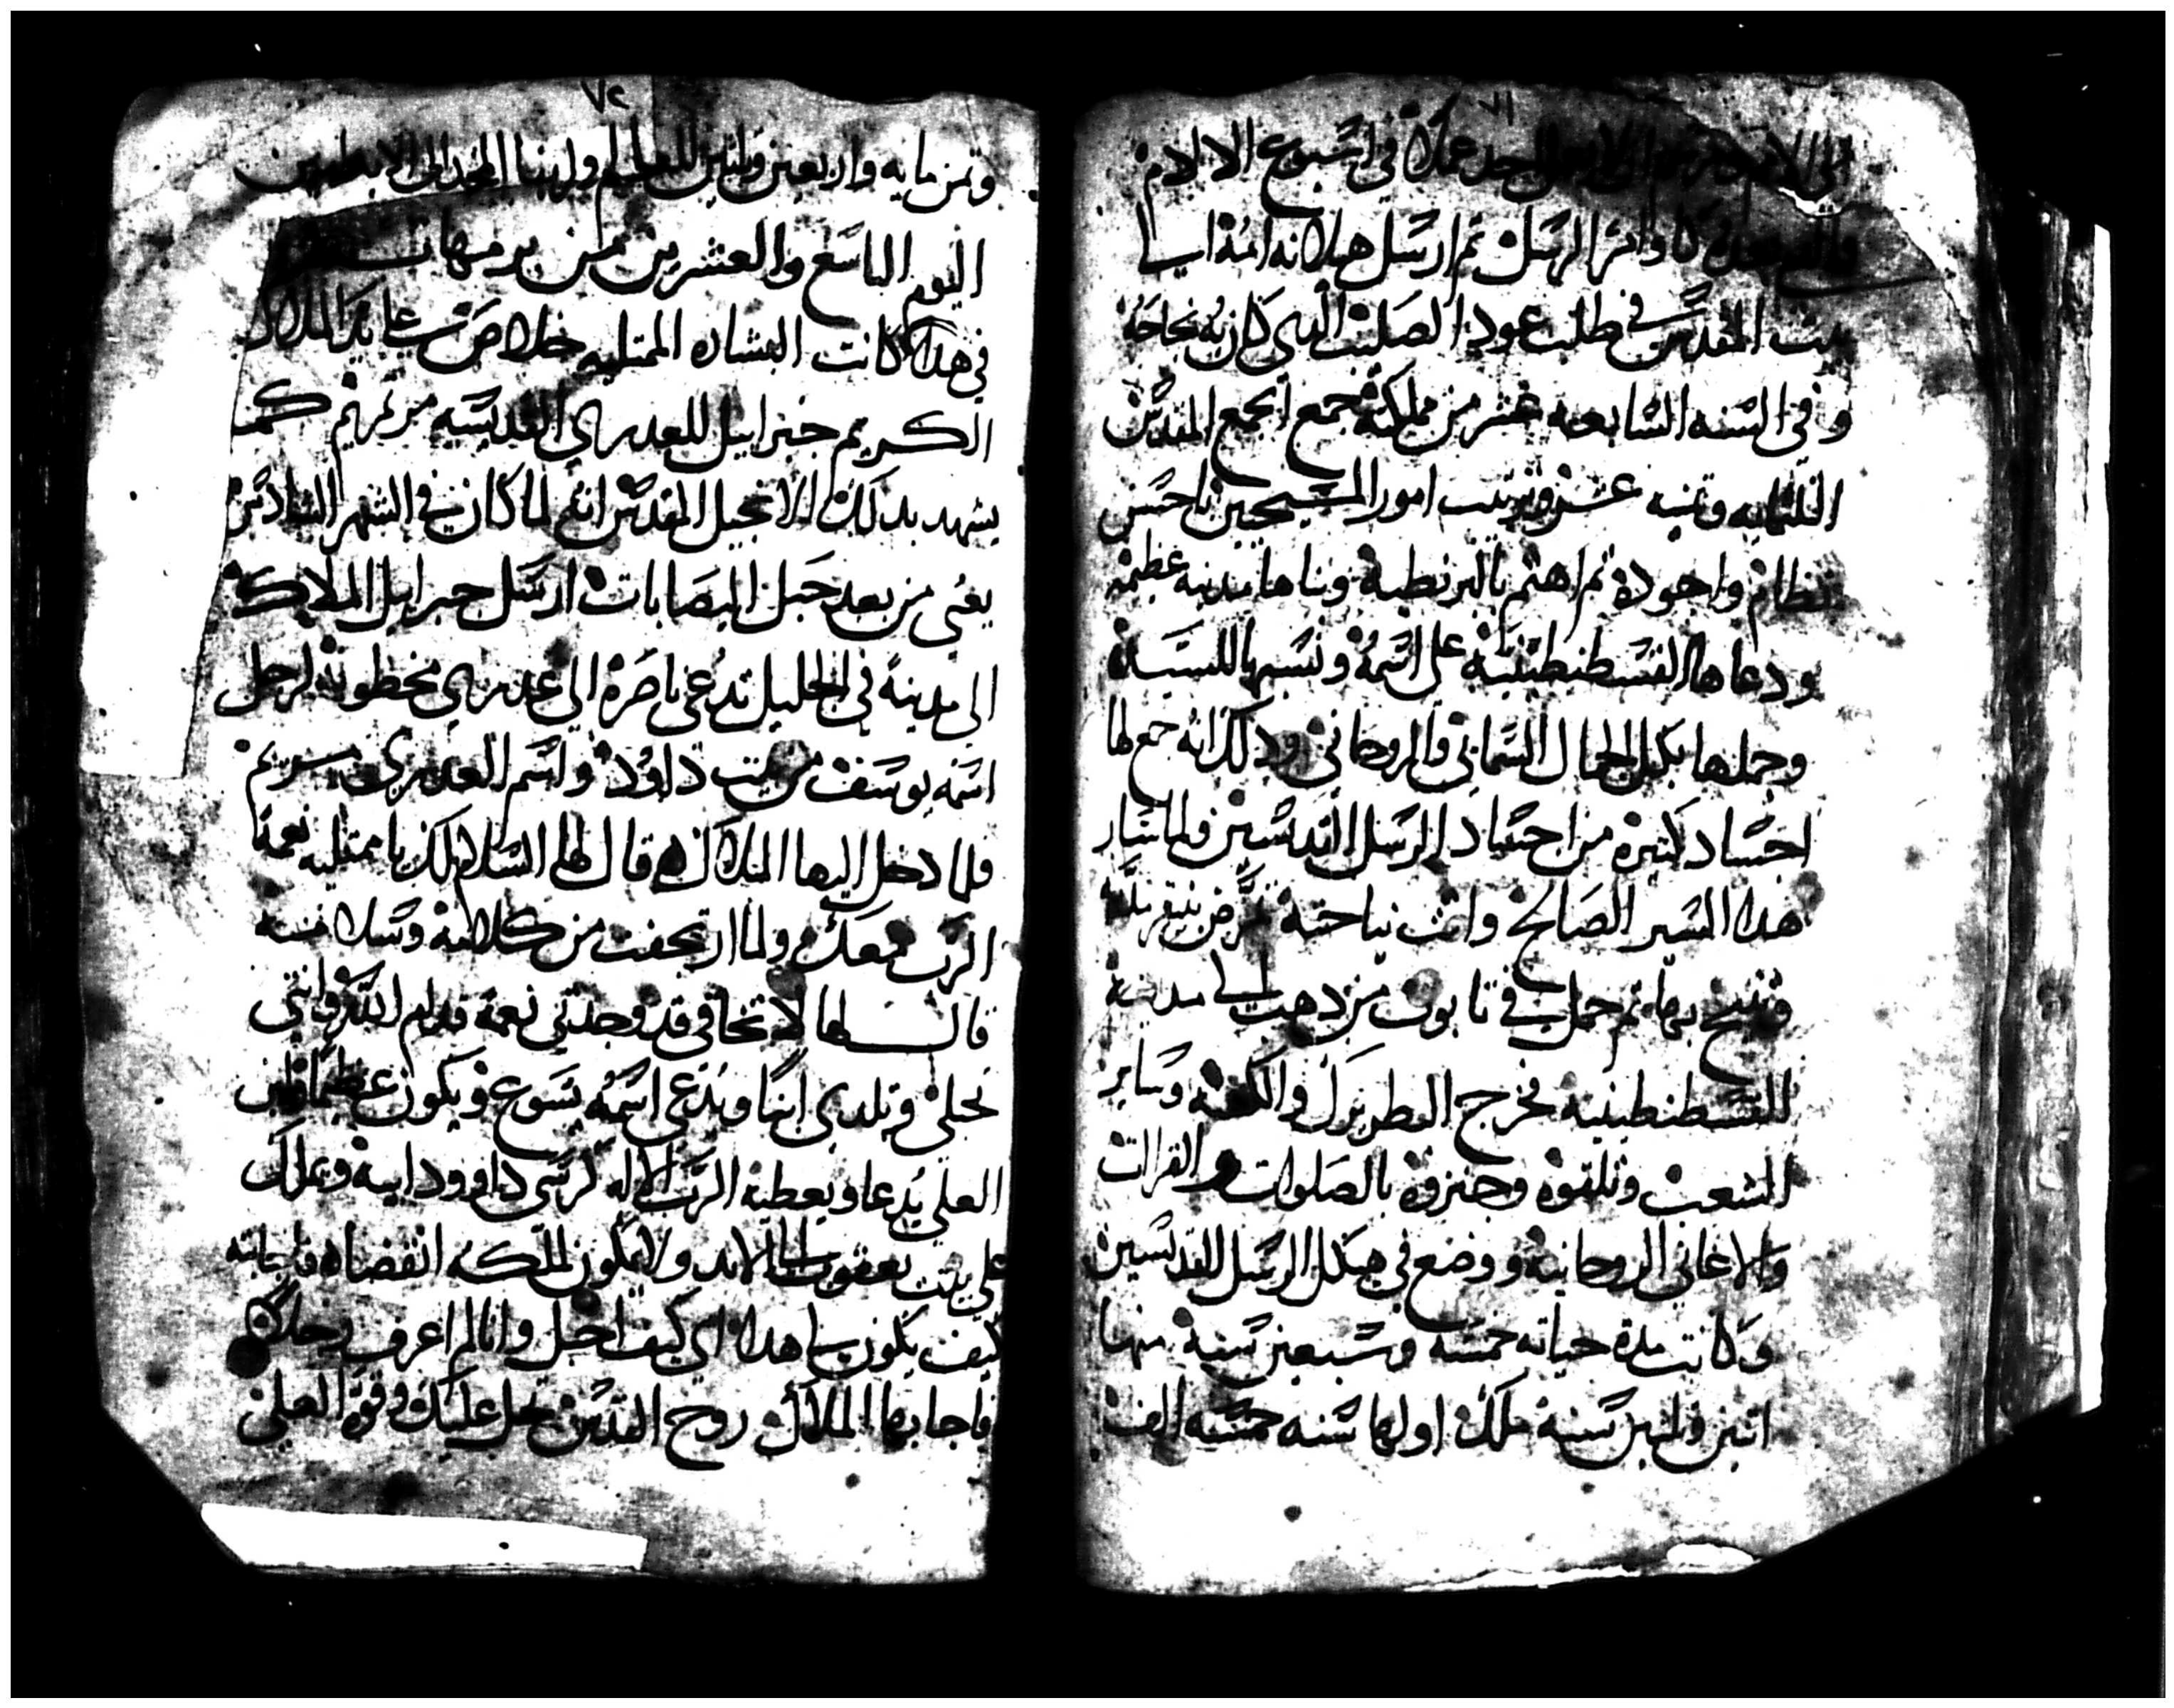 ٧١
في اسبوع الالام
كما وامر الرسل ثم ارسل هيلانه امه الى
بيت المقدس في طلب عود الصليب الدى كان به نجاحه
وفي السنه السابعه عشر من مملكته جمع المجمع المقدس
التلتمايه وتمنيه عشر ورتب امور المسيحيين باحسن
نظام واجوده ثم اهتم بالبرنطية وبناها مدينه عظيمه
ودعاها القسطنطينية على اسمه ونسبها للسيدة
وجملها بكل الجمال السماني والروحاني ودلك انه جمع لها
اجساد كتيره من اجساد الرسل القديسين ولما سار
هدا السير الصالح واتت نياحته تمرض
وتنيح بها ثم حمل في تابوت من دهب الى مدينة
القسطنطينيه فخرج البطريرك والكهنه وساير
الشعب وتلقوه وجنزوه بالصلوات والقرات
والاغاني الروحانية ووضع في هيكل الرسل القديسين
وكانت مدة حياته خمسه وسبعين سنة منها
اتنين وتلتين سنة ملك اولها سنه خمسه الف
٧٢
وتمن مايه واربعين وتلتين للعالم ولربنا المجد الى الابد امين
اليوم التاسع والعشرين من برمهات
في هدا كانت البشاره الممتليه خلاص
الكريم جبراييل للعدرى القديسه مرتمريم كما
يشهد بدلك الانجيل المقدس انه لما كان في الشهر السادس
يعني من بعد حبل اليصابات ارسل جبراييل الملاك
الى مدينة في الجليل تدعى ناصرة الي عدرى مخطوبة لرجل
اسمه يوسف من بيت داوود واسم العدرى مريم
فلما دخل اليها الملاك قال لها السلام لك يا ممتليه نعمة
الرب معك ولما ارتجفت من كلامه وسلامه
قال لها لا تخافي قد وجدتي نعمة قدام الله وانتي
تحبلي وتلدي ابنا ويدعى اسمه يسوع ويكون عظيما وابن
العلي يدعا ويعطيه الرب الاله كرسى داوود ابيه ويملك
على بيت يعقوب الى الابد ولا يكون لملكه انقضاه فاجابته
كيف يكون لي هدا اي كيف احبل وانا لم اعرف رجلا
فاجابها الملاك روح القدس يحل عليك وقوة العلي